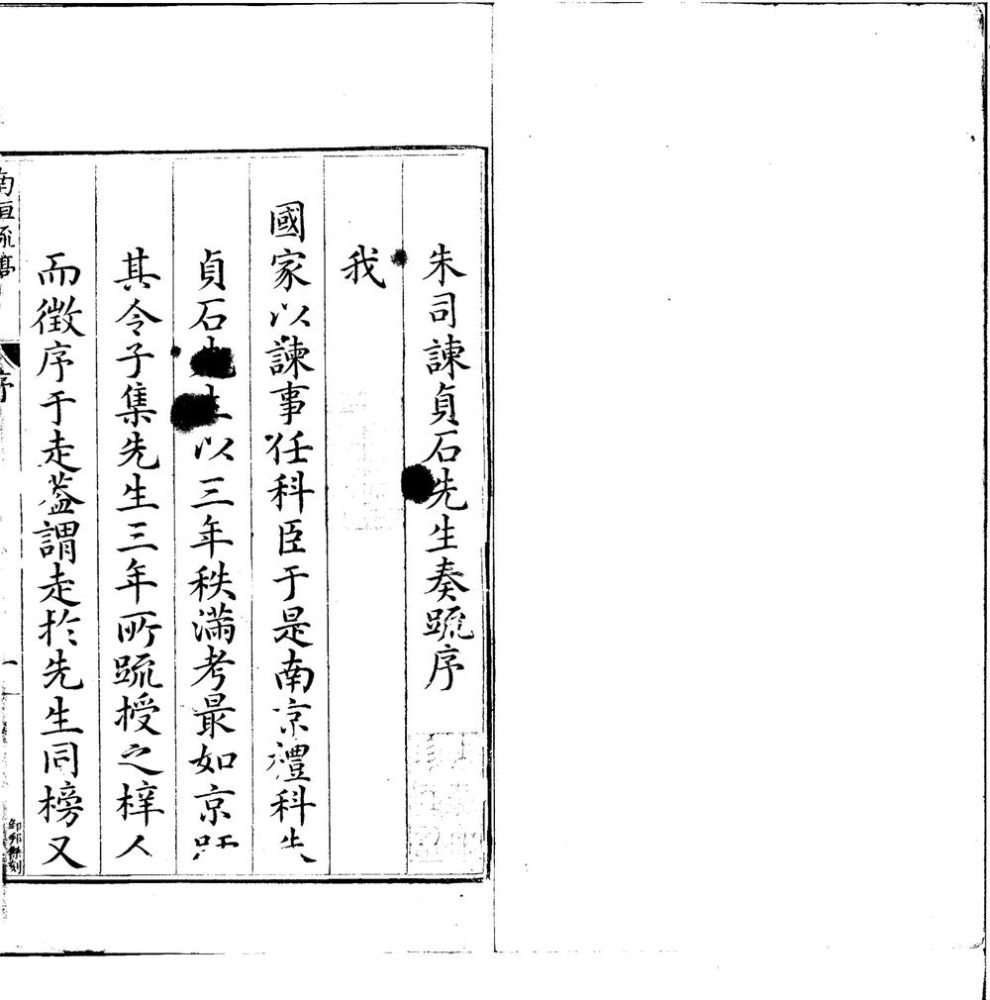 朱司諫貞石先生奏䟽序
我
國家以諫事任科臣于是南京禮科朱
貞石先生以三年秩滿考最如京師
其令子集先生三年所䟽授之梓人
而徵序于走葢謂走於先生同榜又
南垣疏藁
序
一